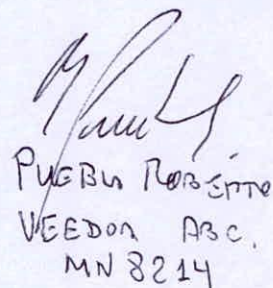 PUEBLA ROBERTO
VEEDOR ABC.
MN 8214